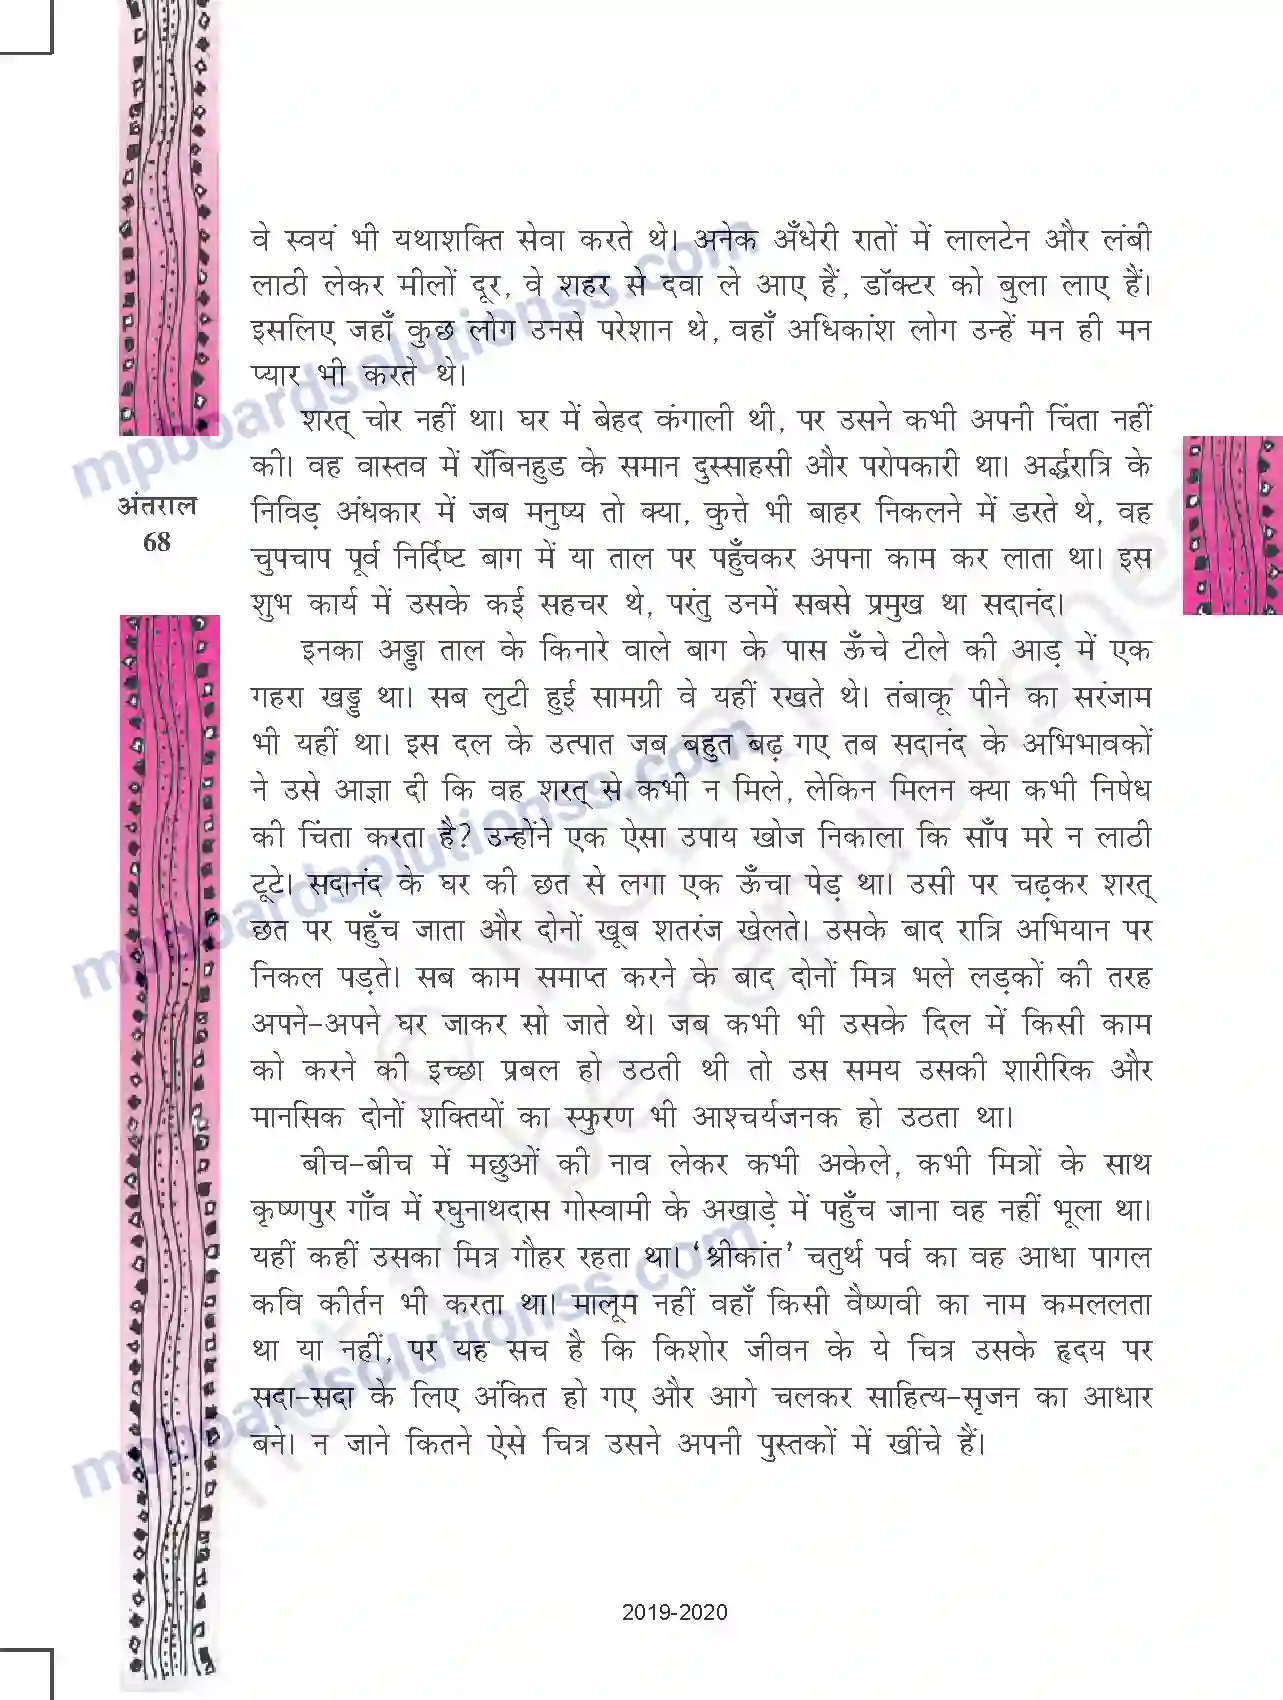 वे स्वयं भी यथाशक्ति सेवा करते थे। अनेक अँधेरी रातों में लालटेन और लंबी
लाठी लेकर मीलों दूर, वे शहर से दवा ले आए हैं, डॉक्टर को बुला लाए हैं।
इसलिए जहाँ कुछ लोग उनसे परेशान थे, वहाँ अधिकांश लोग उन्हें मन ही मन
प्यार भी करते थे।
शरत् चोर नहीं था। घर में बेहद कंगाली थी, पर उसने कभी अपनी चिंता नहीं
की। वह वास्तव में रॉबिनहुड के समान दुस्साहसी और परोपकारी था। अर्द्धरात्रि के
निविड़ अंधकार में जब मनुष्य तो क्या, कुत्ते भी बाहर निकलने में डरते थे, वह
चुपचाप पूर्व निर्दिष्ट बाग में या ताल पर पहुँचकर अपना काम कर लाता था। इस
शुभ कार्य में उसके कई सहचर थे, परंतु उनमें सबसे प्रमुख था सदानंद।
इनका अड्डा ताल के किनारे वाले बाग के पास ऊँचे टीले की आड़ में एक
गहरा खड्ड था। सब लुटी हुई सामग्री वे यहीं रखते थे। तंबाकू पीने का सरंजाम
भी यहीं था। इस दल के उत्पात जब बहुत बढ़ गए तब सदानंद के अभिभावकों
ने उसे आज्ञा दी कि वह शरत् से कभी न मिले, लेकिन मिलन क्या कभी निषेध
की चिंता करता है? उन्होंने एक ऐसा उपाय खोज निकाला कि साँप मरे न लाठी
टूटे। सदानंद के घर की छत से लगा एक ऊँचा पेड़ था। उसी पर चढ़कर शरत्
छत पर पहुँच जाता और दोनों खूब शतरंज खेलते। उसके बाद रात्रि अभियान पर
निकल पड़ते। सब काम समाप्त करने के बाद दोनों मित्र भले लड़कों की तरह
अपने-अपने घर जाकर सो जाते थे। जब कभी भी उसके दिल में किसी काम
को करने की इच्छा प्रबल हो उठती थी तो उस समय उसकी शारीरिक और
मानसिक दोनों शक्तियों का स्फुरण भी आश्चर्यजनक हो उठता था।
बीच-बीच में मछुओं की नाव लेकर कभी अकेले, कभी मित्रों के साथ
कृष्णपुर गाँव में रघुनाथदास गोस्वामी के अखाड़े में पहुँच जाना वह नहीं भूला था।
यहीं कहीं उसका मित्र गौहर रहता था। ‘श्रीकांत’ चतुर्थ पर्व का वह आधा पागल
कवि कीर्तन भी करता था। मालूम नहीं वहाँ किसी वैष्णवी का नाम कमललता
था या नहीं, पर यह सच है कि किशोर जीवन के ये चित्र उसके हृदय पर
सदा-सदा के लिए अंकित हो गए और आगे चलकर साहित्य-सृजन का आधार
बने। न जाने कितने ऐसे चित्र उसने अपनी पुस्तकों में खींचे हैं।
अंतराल
68
2019-2020
mpboardsolutionss.com
mpboardsolutionss.com
mpboardsolutionss.com
© NCERT
not to be republished